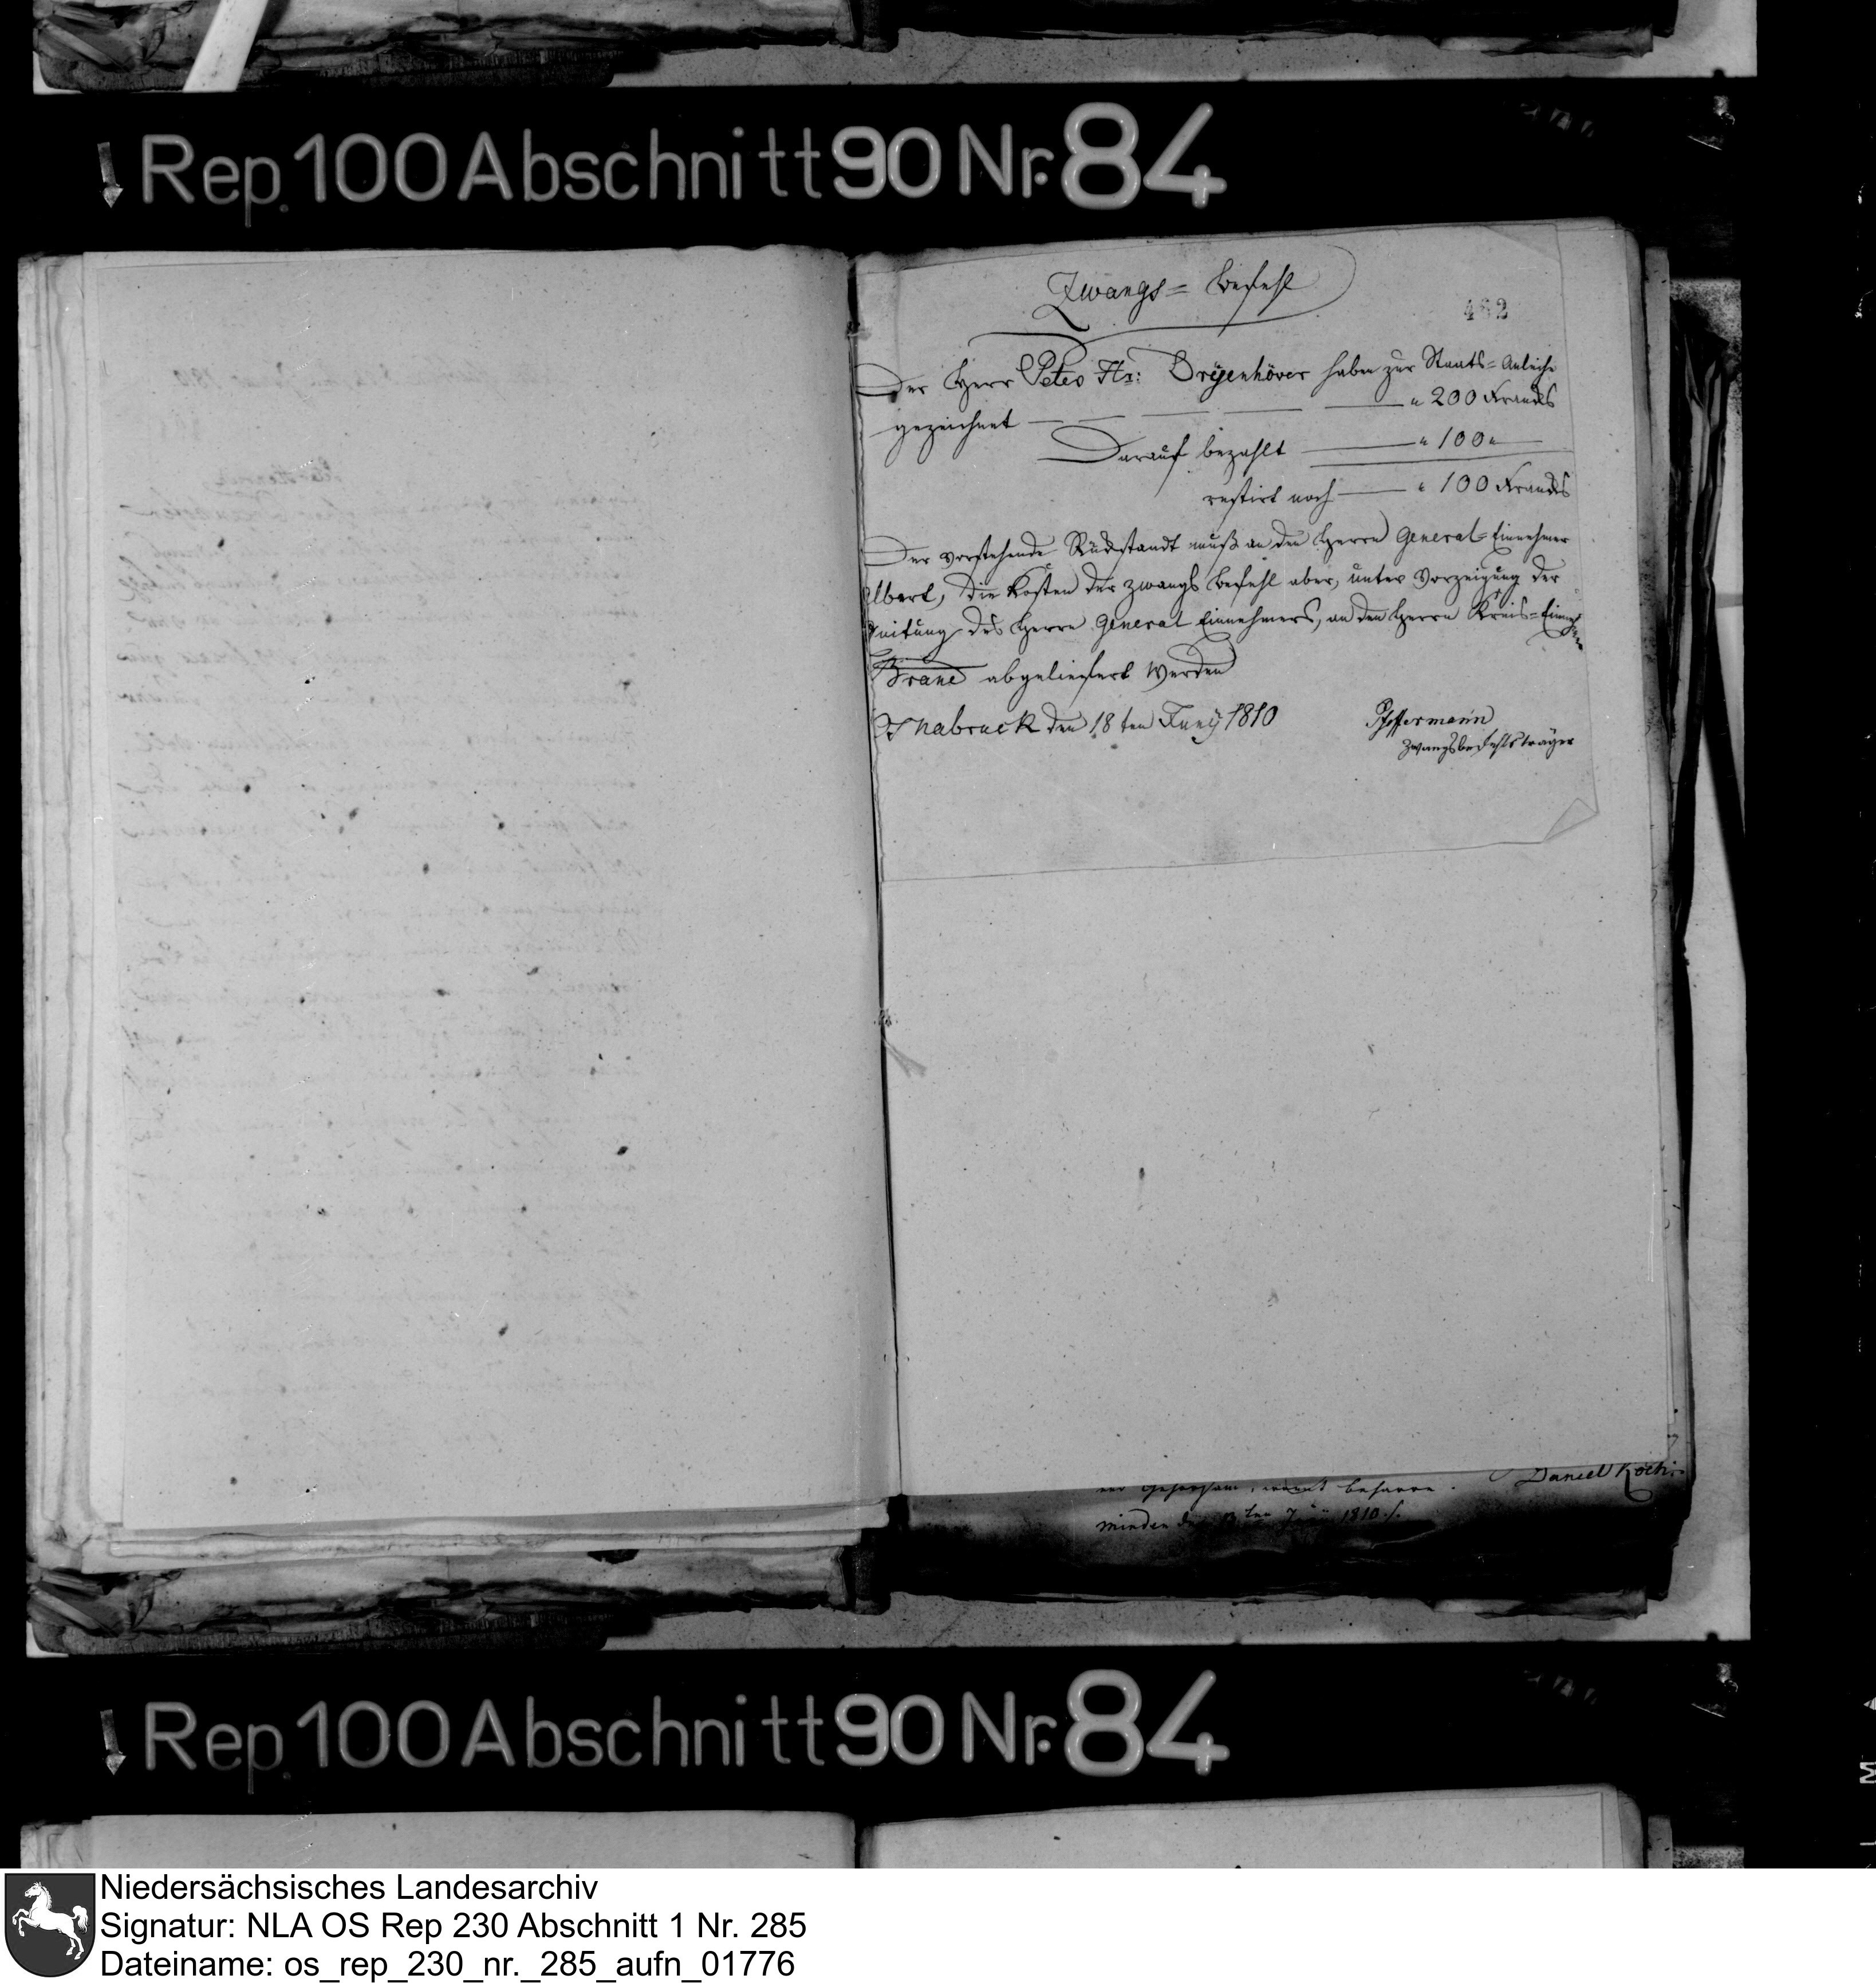 Rep. 100 Abschnitt 90 Nr. 84
Zwangs= Befehl
462
Der Herr Peter Hr: Dreyenhöver haben zur Staats=Anleihe
gezeichnet — — — — — " 200 Francks
Darauf bezahlt — " 100 "
restirt noch — " 100 Francks
Der vorstehende Rückstandt muß an den Herrn General=Einnehmer
Albert, die Kosten der Zwangs Befehl aber, unter Vorzeigung der
Quitung des Herrn General Einnehmers, an den Herrn Kreis=Einnehmer
abgeliefert werden
Osnabruck den 18ten Juny 1810
Pfeffermann
Zwangsbefehlsträger
Daniel Koch
Minden 1810
Rep. 100 Abschnitt 90 Nr. 84
Niedersächsisches Landesarchiv
Signatur: NLA OS Rep 230 Abschnitt 1 Nr. 285
Dateiname: os_rep_230_nr._285_aufn_01776